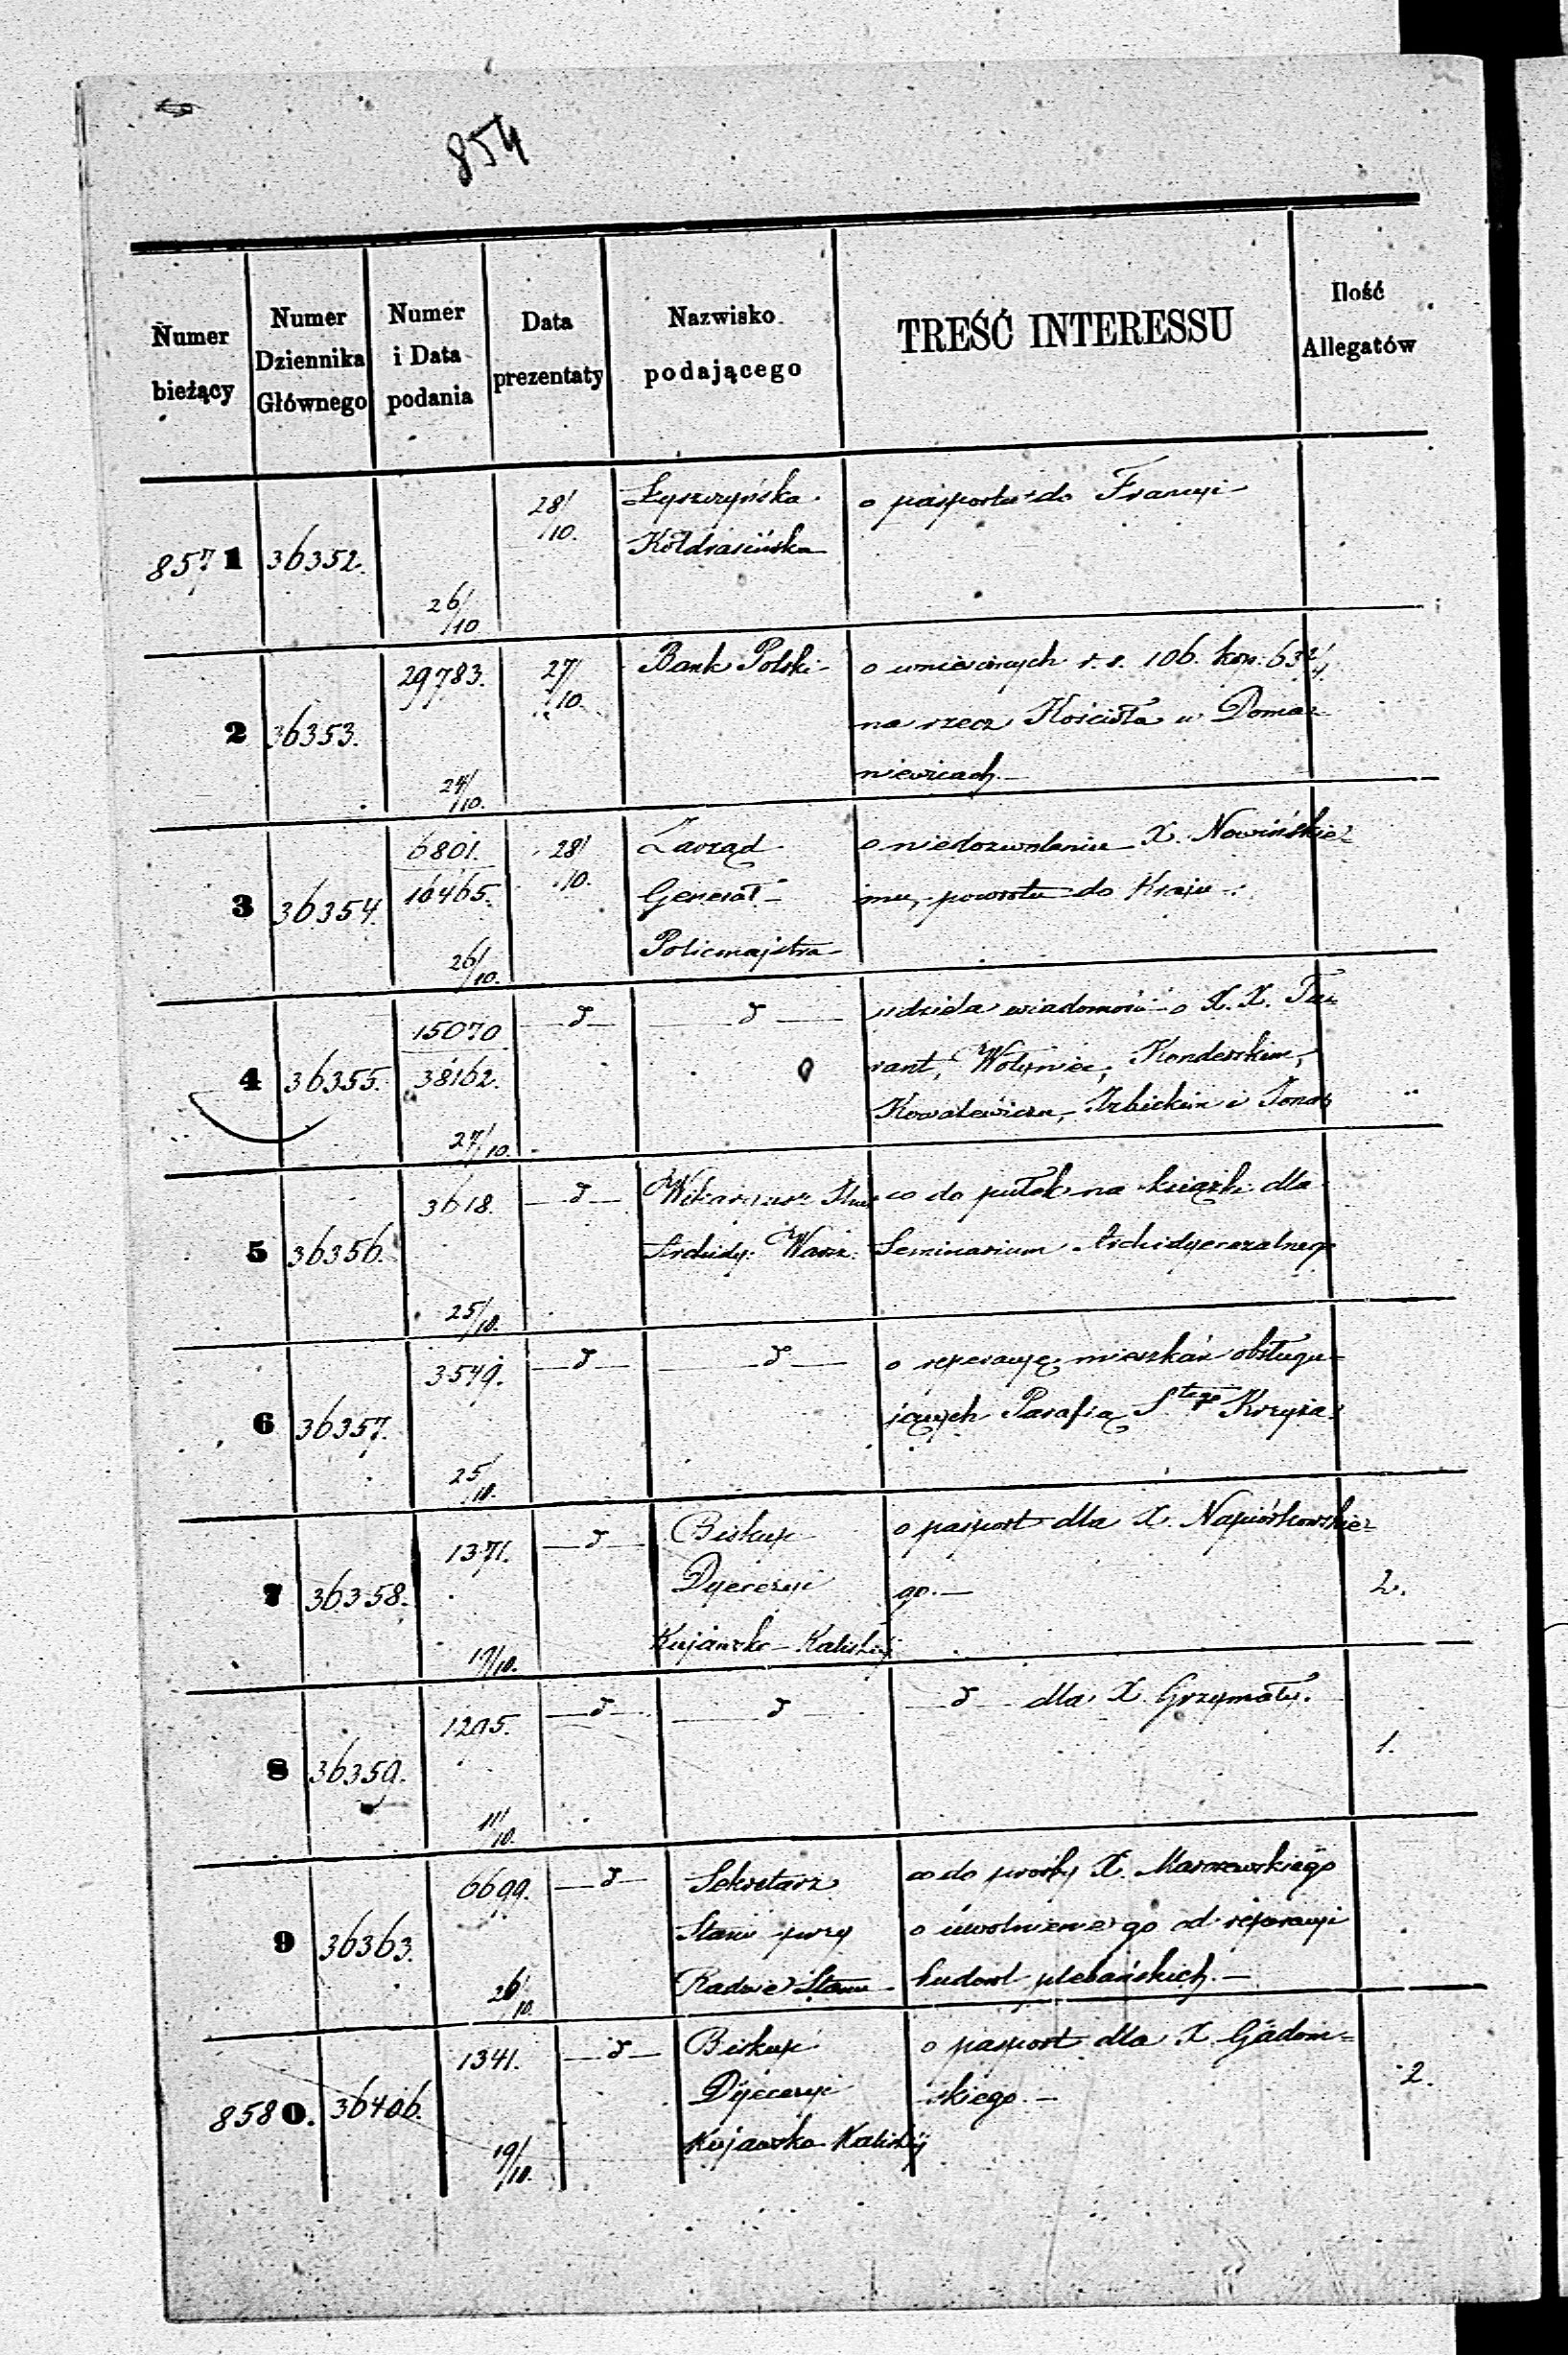 854
Numer bieżący
Numer Dziennika Głównego
Numer i Data podania
Data prezentaty
Nazwisko podającego
TREŚĆ INTERESSU
Ilość Allegatów
8571 36352. 26/10 28/10.
Łyszczyńska
o pasportu do Francyi
2 36353. 29783. 24/10. 27/10.
Bank Polski
o wniesionych r. s. 106. kop. 63
na rzecz Kościoła w Doma=
niewicach.—
3 36354. 6801. 16465. 26/10. 28/10.
Zarząd
Generał-
Policmajstra
o niedozwoleniu X. Nowińskie=
mu, powrotu do Kraju.
4 36355. 15070 38162. 27/10. —d— —d—
udziela wiadomość o X. X.
rant, Wołyniec, Konderskim,
Kowalewiczu, Izbickim i
5 36356. 3618. 25/10. —d—
Archidy. Warsz.
co do pułek na książki dla
Seminarium Archidyecezalnego
6 36357. 3549. 25/10. —d— —d—
o reperacyę mieszkań obsługu=
jących Parafią Stego Krzyża.
7 36358. 1371. 19/10. —d—
Biskup
Dyecezyi
Kujawsko-Kaliskiej
o pasport dla X. Napiórkowskie=
go.—
2.
8 36359. 1205. 11/10. —d— —d—
—d— dla X. Grzymały.
1.
9 36363. 6699. 26/10. —d—
Sekretarz
Stanu przy
Radzie Stanu
co do prośby X.
o uwolnienie go od reperacyi
budowl plebańskich.—
8580. 36406. 1341. 19/10. —d—
Biskup
Dyecezyi
Kujawsko-Kaliskiej
o pasport dla X. Gadom=
skiego.—
2.